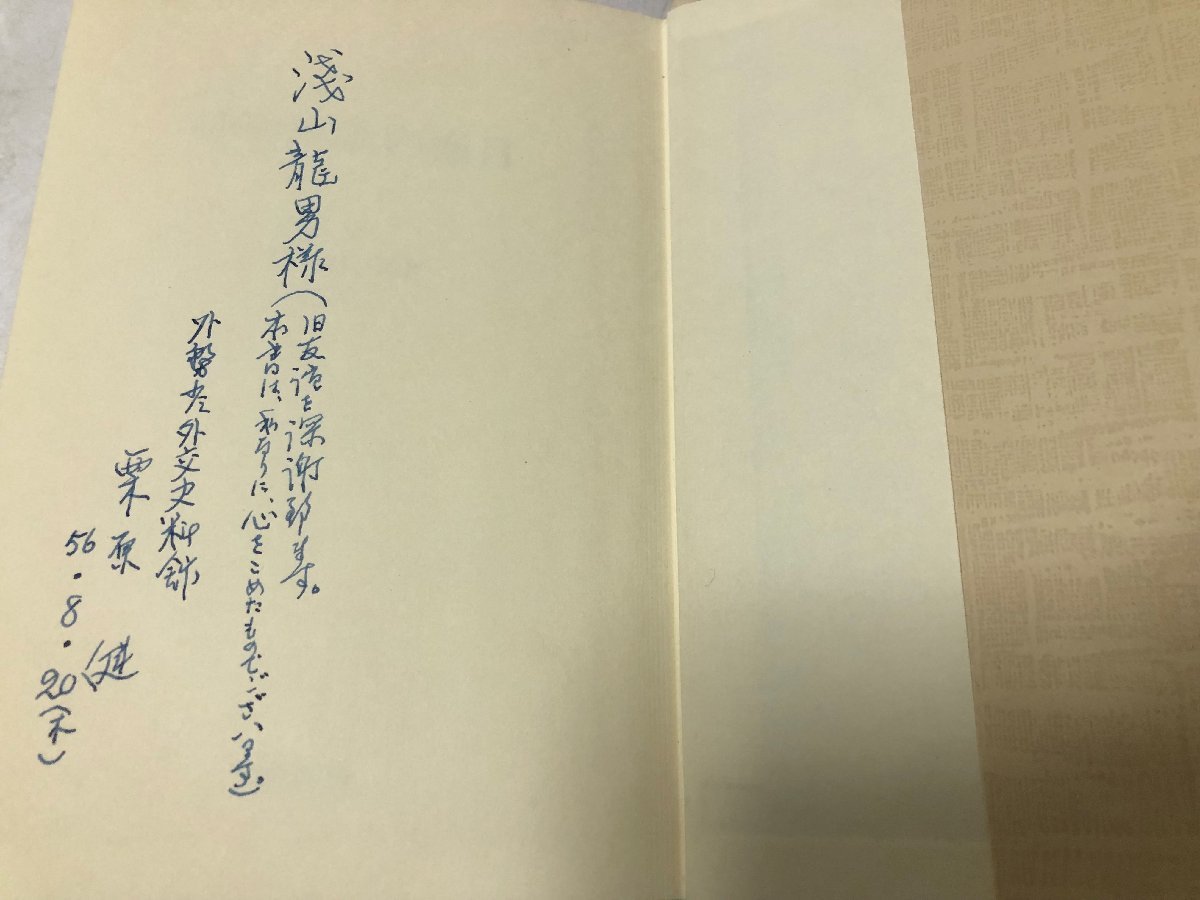 淺山龍男様
(旧友誼を深謝致します。
本書は、私なりに、心をこめたものでございます。)
外務省外交史料館
栗原 健
56・8・20(木)